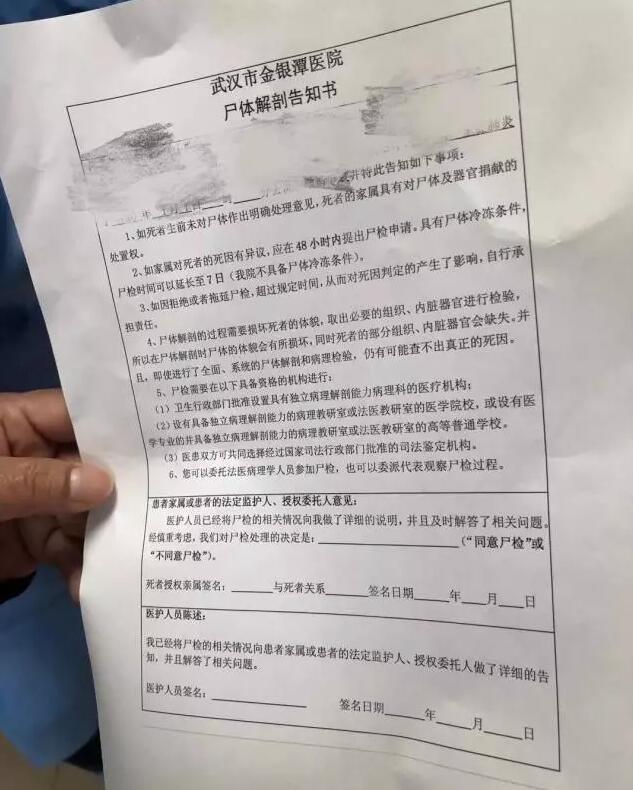 武汉市金银潭医院
尸体解剖告知书
并特此告知如下事项：
1、如死者生前未对尸体作出明确处理意见，死者的家属具有对尸体及器官捐献的
处置权。
2、如家属对死者的死因有异议，应在48小时内提出尸检申请。具有尸体冷冻条件，
尸检时间可以延长至7日（我院不具备尸体冷冻条件）。
3、如因拒绝或者拖延尸检，超过规定时间，从而对死因判定的产生了影响，自行承
担责任。
4、尸体解剖的过程需要损坏死者的体貌，取出必要的组织、内脏器官进行检验，
所以在尸体解剖时尸体的体貌会有所损坏，同时死者的部分组织、内脏器官会缺失。并
且，即使进行了全面、系统的尸体解剖和病理检验，仍有可能查不出真正的死因。
5、尸检需要在以下具备资格的机构进行：
（1）卫生行政部门批准设置具有独立病理解剖能力病理科的医疗机构；
（2）设有具备独立病理解剖能力的病理教研室或法医教研室的医学院校，或设有医
学专业的并具备独立病理解剖能力的病理教研室或法医教研室的高等普通学校。
（3）医患双方可共同选择经过国家司法行政部门批准的司法鉴定机构。
6、您可以委托法医病理学人员参加尸检，也可以委派代表观察尸检过程。
患者家属或患者的法定监护人、授权委托人意见：
医护人员已经将尸检的相关情况向我做了详细的说明，并且及时解答了相关问题。
经慎重考虑，我们对尸检处理的决定是：____________（“同意尸检”或
“不同意尸检”）。
死者授权亲属签名：______与死者关系______签名日期_____年____月____日
医护人员陈述：
我已经将尸检的相关情况向患者家属或患者的法定监护人、授权委托人做了详细的告
知，并且解答了相关问题。
医护人员签名：____________ 签名日期_____年____月____日